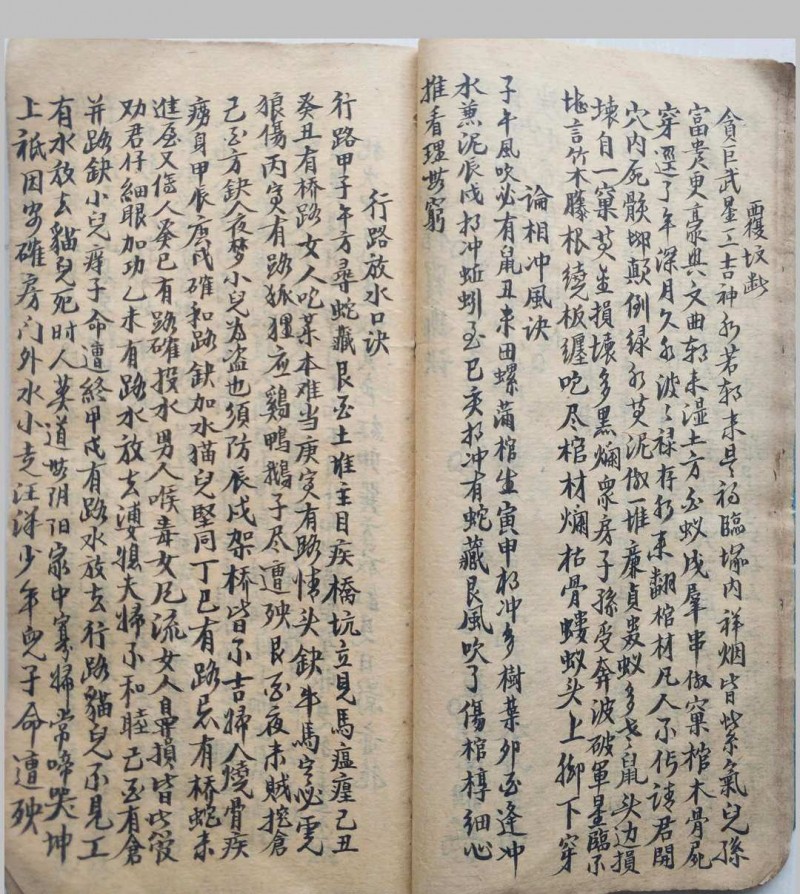 覆坟断
貪巨武星三吉神水若朝来是福臨塚内祥烟皆紫氣兒孫
富贵更豪興文曲朝来湿土方白蚁成羣串做窠棺木骨屍
穿選了年深月久水波々禄存水来翻棺材凡人不信請君開
穴内死骸却顛倒绿水黄泥做一堆廉貞蟲蚁多老鼠头边損
壊自一窠黄金損壊多黑爛眾房子孫受奔波破軍星臨不
堪言竹木藤根繞板纏吃尽棺材爛枯骨螻蚁头上脚下穿
論相冲風诀
子午風吹必有鼠丑未田螺蒲棺生寅申相冲多樹葉卯酉逢冲
水兼泥辰戌相冲蚯蚓至巳亥相冲有蛇藏艮風吹了傷棺槨细心
推看理世窮
行路放水口诀
行路甲子午方尋蛇藏艮酉土堆主目疾橋坑立見馬瘟瘴己丑
癸丑有桥路女人吃菜本难当庚寅有路情头缺牛馬定必
狼傷丙寅有路狐狸夜鷄鴨鵝子尽遭殃艮酉夜来贼挖倉
己酉方缺人夜梦小兒为盗也須防辰戌架桥皆不吉婦人燒骨疾
痨身甲辰庚戌碓和路缺加水猫兒堅同丁巳有路忌有桥蛇来
進屋又傷人癸巳有路碓投水男人喉毒女凡流女人損皆此
劝君仔細眼加功乙未有路水放去婆媳夫婦不和睦己酉有倉
并路缺小兒痨子命遭終甲戌有路水放去行路貓兒不見工
有水放去貓兒死时人莫道世阴阳家中寡婦常啼哭坤
上祇因安碓房门外水小走汪洋少年兒子命遭殃